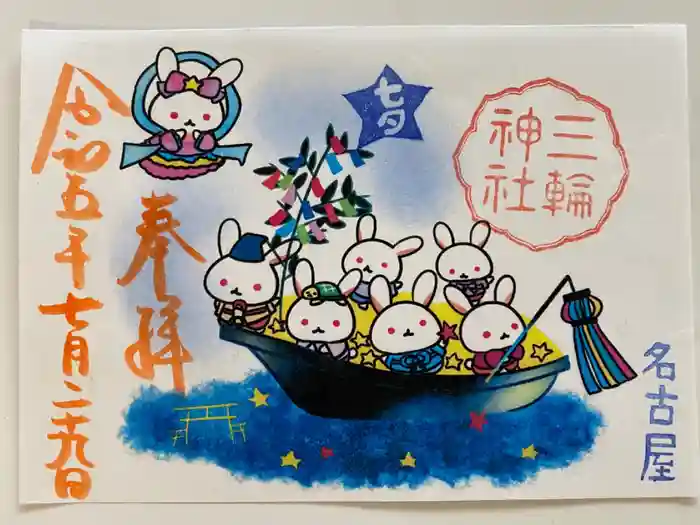 三輪
神社
七夕
奉拝
令和五年七月二十九日
名古屋